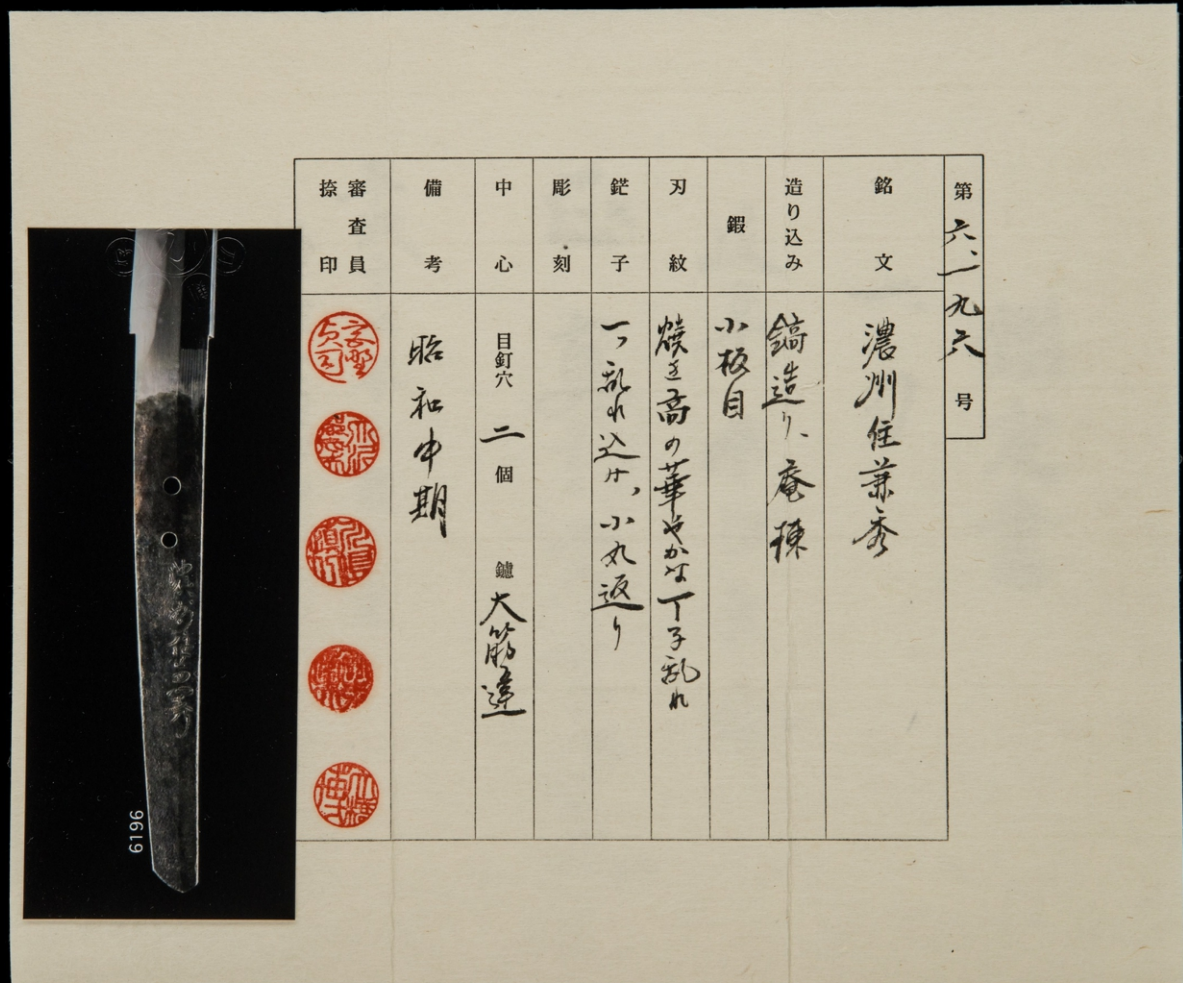 第六、一九六号
銘文
濃州住兼秀
造り込み
鎬造り、庵棟
鍜
小板目
刃紋
焼き高の華やかな丁子乱れ
鋩子
乱れ込み、小丸返り
彫刻
中心
目釘穴 二 個 鑢 大筋違
備考
昭和中期
審査員
捺印
6196